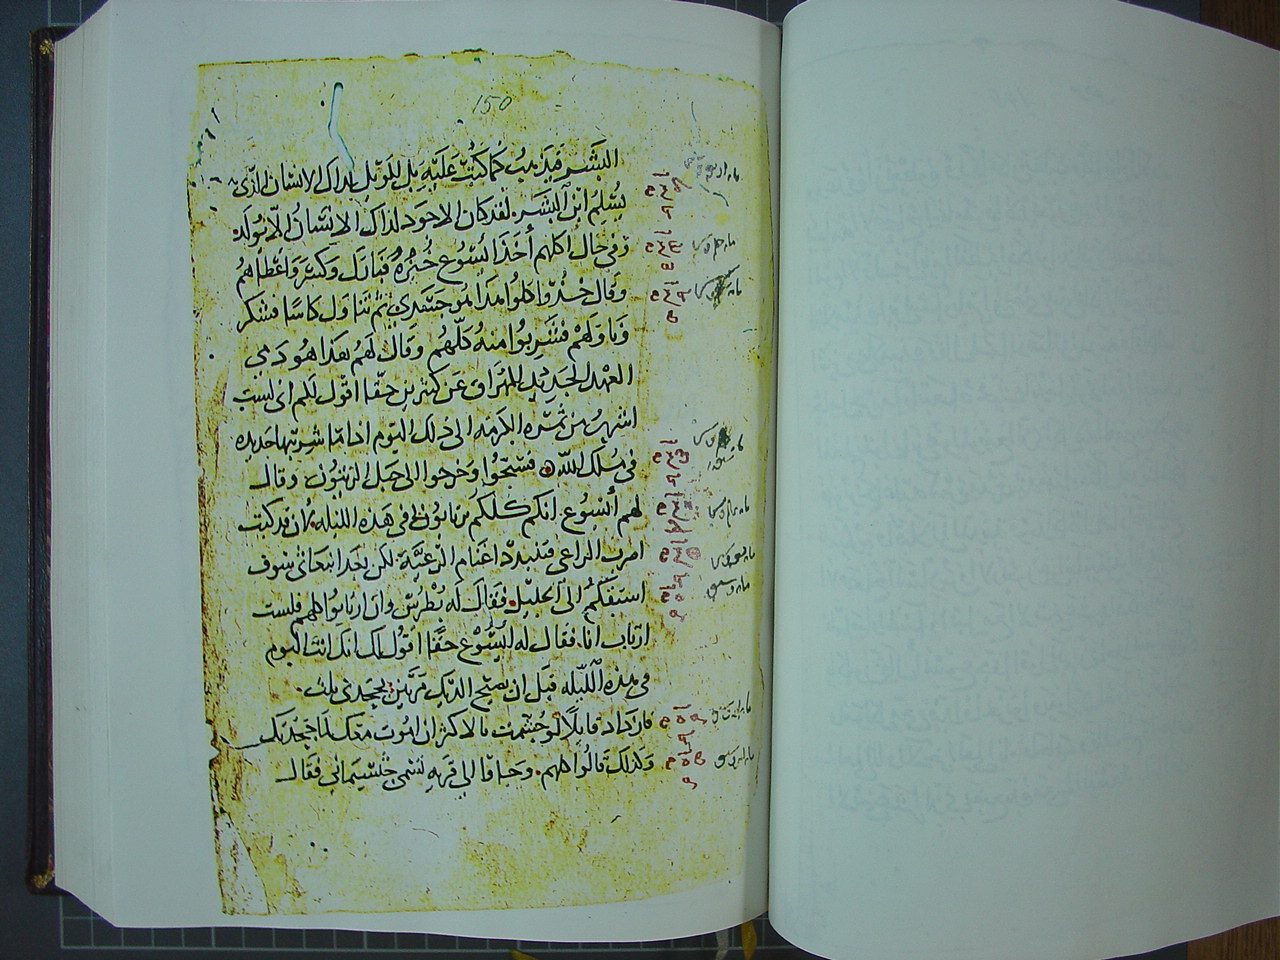 150
البشر فيذهب كما كتب عليه بل الويل لذاك الانسان الذي
يسلم ابن البشر. لقد كان الاجود لذاك الانسان الا يولد.
وفي حال اكلهم أخذ ايسوع خبزه فبارك وكسر واعطاهم
وقال خذوا كلوا هذا هو جسدي ثم تناول كاسا فشكر
وناولهم فشربوا منه كلهم وقال لهم هذا هو دمي
العهد الجديد المهراق عن كثيرين حقا اقول لكم اني لست
اشرب من ثمره الكرمه الى ذلك اليوم اذا ما شربتها جديده
في ملك الله فسبحوا وخرجوا الى جبل الزيتون وقال
لهم أيسوع. انكم كلكم ترتابون في هذه الليله لان قد كتب
اضرب الراعي فتتبدد اغنام الرعية. لكن بعد انبعاثي سوف
استبقكم الى الجليل. فقال له بطرس وان ارتابوا كلهم فلست
ارتاب انا. فقال له ايسوع حقا اقول لك انك انت اليوم
في هذه الليله قبل ان يصيح الديك مرتين تجحدني ثلث.
فازداد قايلا لو جشمت بالاكثر ان اموت معك لما جحدتك
وكذلك قالوا كلهم. وجاوا الى قريه تسمى جتسيماني فقال